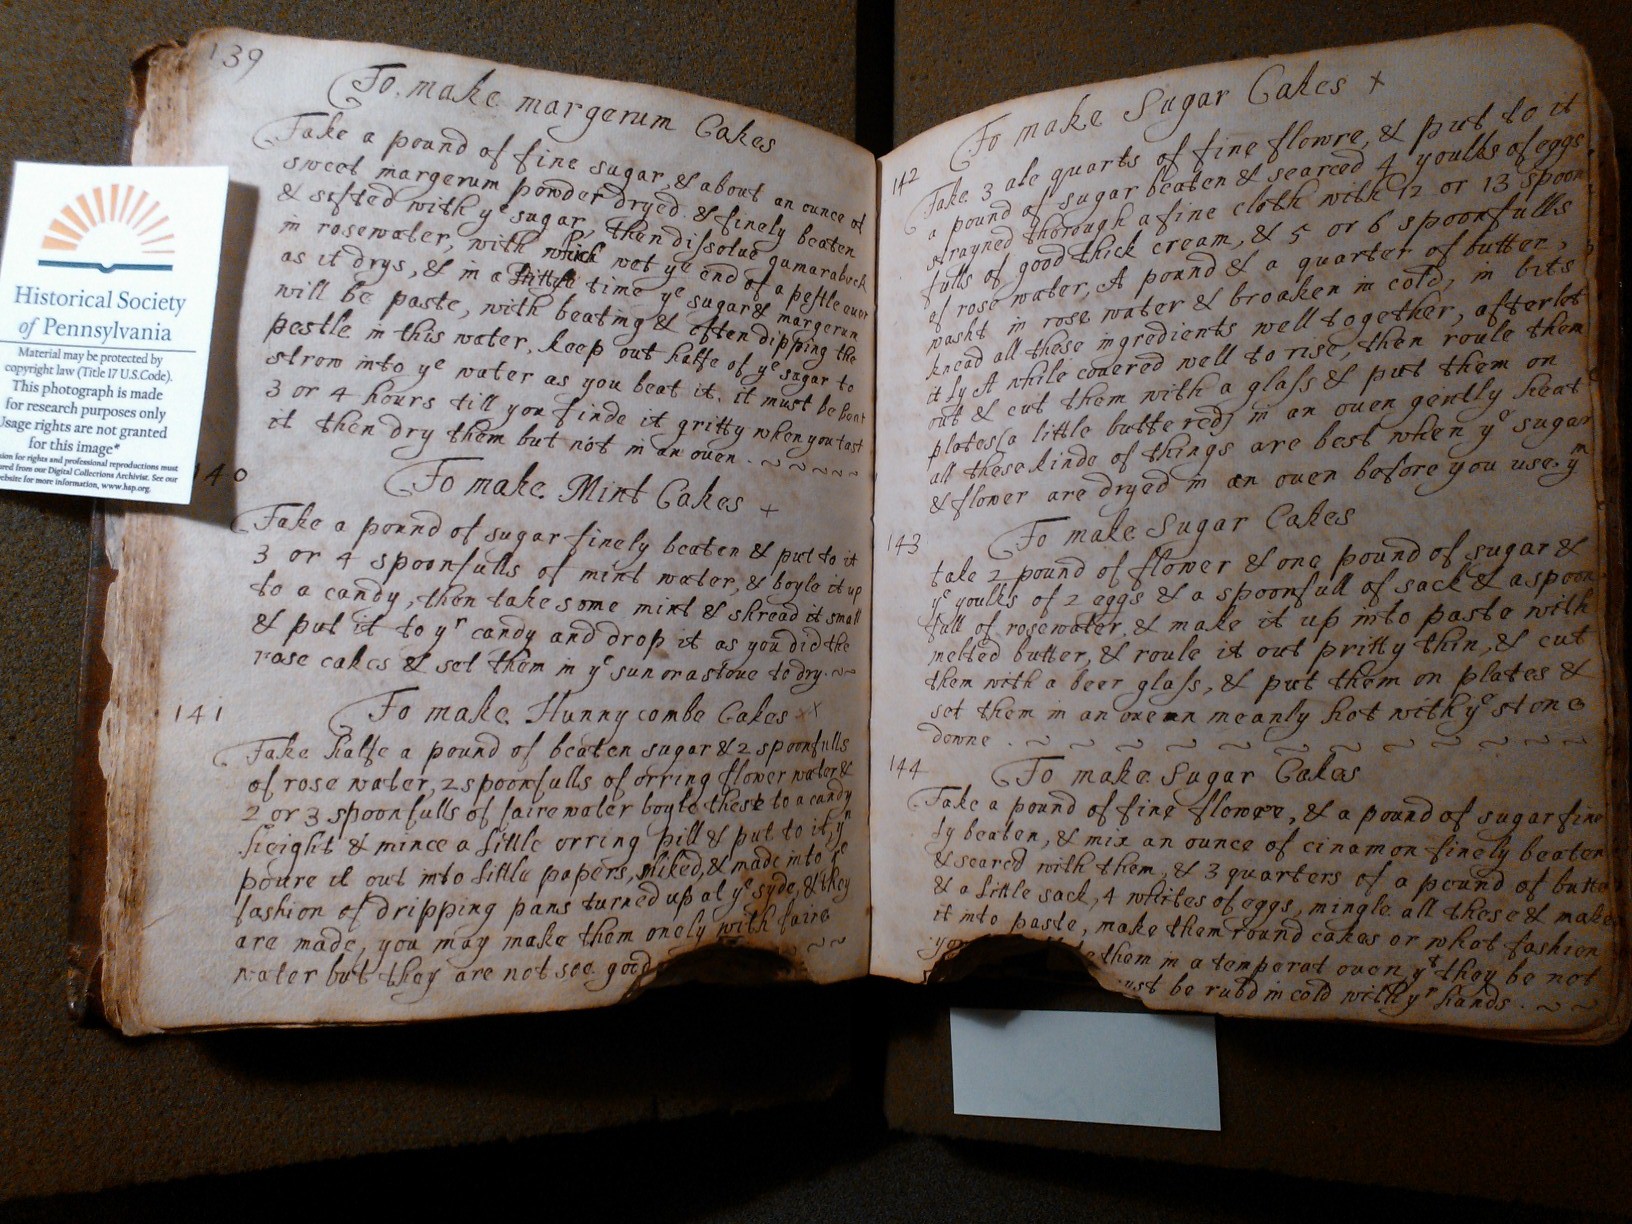 139
To make margerum Cakes
Take a pound of fine sugar, & about an ounce of
sweet margerum powder dryed & finely beaten
& sifted with ye sugar, then dissolue gumarabeck
in rosewater, with which wet ye end of a pestle euer
as it drys, & in a little time ye sugar & margerum
will be paste, with beating & often dipping the
pestle in this water. keep out halfe of ye sugar to
strow into ye water as you beat it. it must be beat
3 or 4 hours till you finde it gritty when you tast
it then dry them but not in an ouen. ~ ~ ~ ~ ~
140
To make Mint Cakes +
Take a pound of sugar finely beaten & put to it
3 or 4 spoonfulls of mint water, & boyle it up
to a candy, then take some mint & shread it small
& put it to yr candy and drop it as you did the
rose cakes & set them in ye sun or a stoue to dry. ~ ~
141
To make Hunny combe Cakes x
Take halfe a pound of beaten sugar & 2 spoonfulls
of rose water, 2 spoonfulls of orring flower water &
2 or 3 spoonfulls of faire water boyle these to a candy
height & mince a little orring pill & put to it, yn
poure it out into little papers, and made into ye
fashion of dripping pans turned up at ye syde, & they
are made, you may make them onely with faire
water but they are not soe good ~ ~
To make Sugar Cakes +
142
Take 3 ale quarts of fine flowre, & put to it
a pound of sugar beaten & searced 4 youlks of eggs
strayned thorough a fine cloth with 12 or 13 spoon
fulls of good thick cream, & 5 or 6 spoonfulls
of rose water, A pound & a quarter of butter,
washt in rose water & broaken in cold, in bits
knead all these ingredients well together, after let
it ly A while couered well to rise, then roule them
out & cut them with a glass & put them on
plates (a little buttered) in an ouen gently heat
all these kinde of things are best when ye sugar
& flower are dryed in an ouen before you use ym
143
To make Sugar Cakes
take 2 pound of flower & one pound of sugar &
ye youlks of 2 eggs & a spoonfull of sack & a spoon
full of rosewater. & make it up into paste with
melted butter, & roule it out pritty thin, & cut
them with a beer glass, & put them on plates &
set them in an ouen meanly hot with ye stone
downe . ~ ~ ~ ~ ~ ~ ~ ~ ~ ~ ~ ~
144
To make Sugar Cakes
Take a pound of fine flower, & a pound of sugar fine
ly beaten, & mix an ounce of cinamon finely beaten
& searced with them, & 3 quarters of a pound of butter
& a little sack, 4 whites of eggs, mingle all these & make
it into paste, make them round cakes or what fashion
them in a temperat ouen, yt they be not
must be rubd in cold with yr hands . ~ ~
Historical Society
of Pennsylvania
Material may be protected by
copyright law (Title 17 U.S.Code).
This photograph is made
for research purposes only
Usage rights are not granted
for this image*
for rights and professional reproductions must
from our Digital Collections Archivist. See our
website for more information, www.hsp.org.